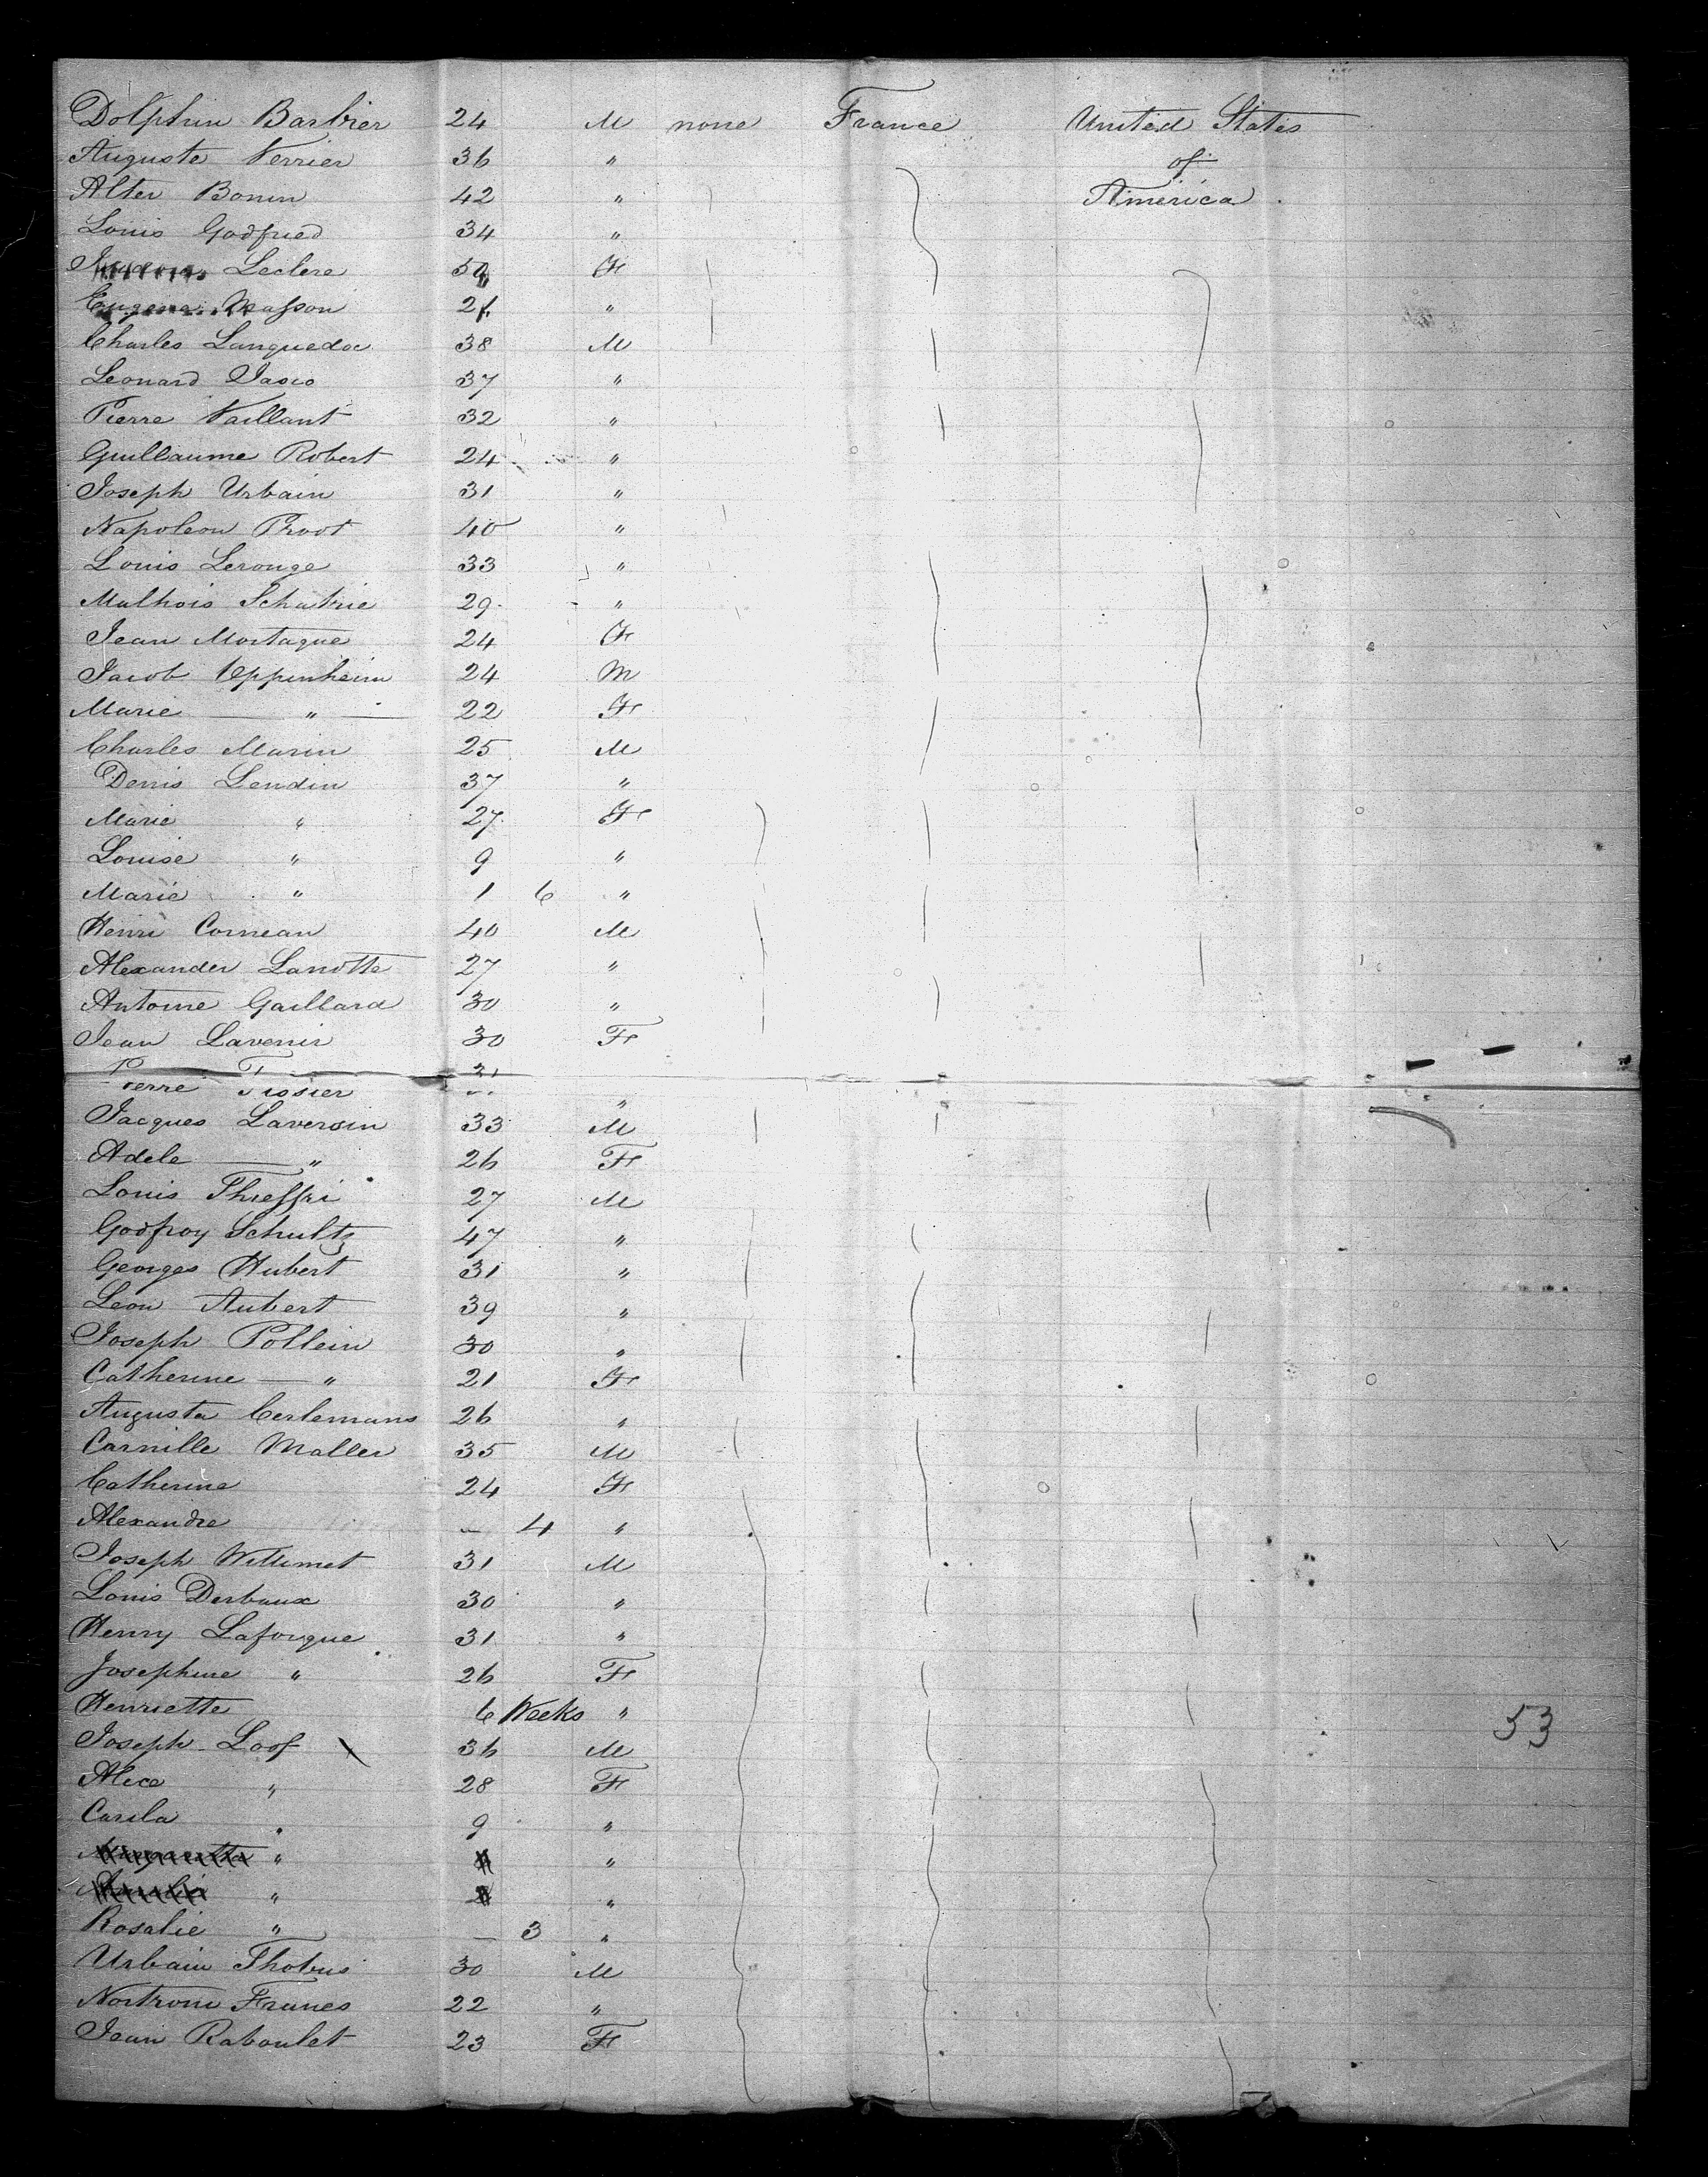 Dolphin Barbier 24 M none France United States
Auguste Verrier 36 " of
Alter Bonin 42 " America
Louis Godfried 34 "
Leclere 50 F
Eugene Masson 21 "
Charles Languedoc 38 M
Leonard Vasco 37 "
Pierre Vaillant 32 "
Guillaume Robert 24 "
Joseph Urbain 31 "
Napoleon Proot 40 "
Louis Lerouge 33 "
Malhois Schatrie 29 "
Jean Mortague 24 F
Jacob Uppenheim 24 M
Marie — " — 22 F
Charles Marin 25 M
Denis Lendin 37 "
Marie " 27 F
Louise " 9 "
Marie " 1 6 "
Henri Corneau 40 M
Alexander Lanotte 27 "
Antoine Gaillard 30 "
Jean Lavenir 30 F
Pierre Tissier 31 "
Jacques Laversin 33 M
Adele — " 26 F
Louis 27 M
Godfroy Schultz 47 "
Georges Hubert 31 "
Leon Aubert 39 "
Joseph Pollein 30 "
Catherine — " 21 F
Augusta Cerlemans 26 "
Carnille Maller 35 M
Catherine 24 F
Alexandre — 4 "
Joseph Willimet 31 M
Louis Derbaux 30 "
Henry Laforgue 31 "
Josephine " 26 F
Henriette 6 Weeks " 53
Joseph Loof 36 M
Alice " 28 F
Carila " 9 "
" "
" "
Rosalie " — 3 "
Urbain Thobus 30 M
Nortrom Frunes 22 "
Jean Raboulet 23 F